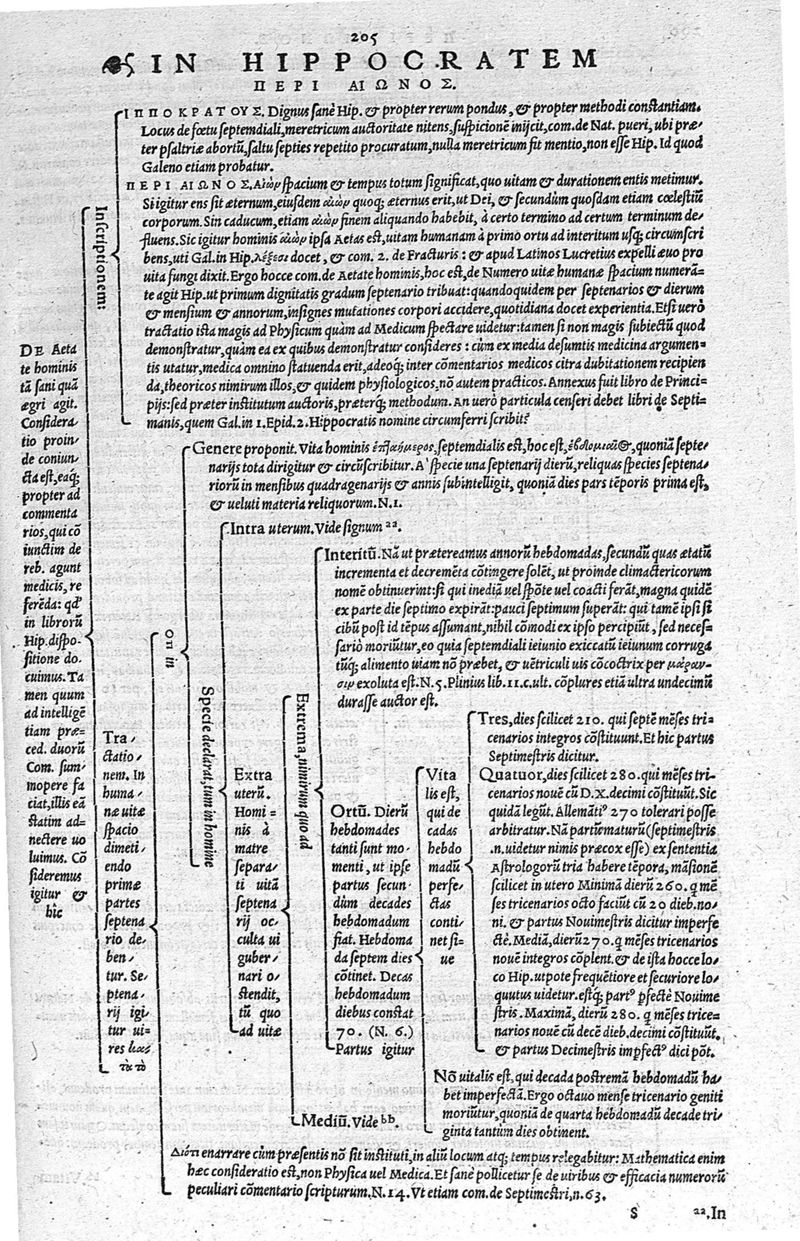 205
IN HIPPOCRATEM
ΠΕΡΙ ΑΙΩΝΟΣ.
ΙΠΠΟΚΡΑΤΟΥΣ. Dignus sanè Hip. & propter rerum pondus, & propter methodi constantiam.
Locus de fœtu septemdiali, meretricum auctoritate nitens, suspicionē inijcit, com. de Nat. pueri, ubi præ-
ter psaltriæ abortū, saltu septies repetito procuratum, nulla meretricum fit mentio, non esse Hip. Id quod
Galeno etiam probatur.
ΠΕΡΙ ΑΙΩΝΟΣ. Αἰὼν spacium & tempus totum significat, quo uitam & durationem entis metimur.
Si igitur ens sit æternum, eiusdem αἰὼν quoq; æternus erit, ut Dei, & secundùm quosdam etiam cœlestiū
corporum. Sin caducum, etiam αἰὼν finem aliquando habebit, à certo termino ad certum terminum de-
fluens. Sic igitur hominis αἰὼν ipsa Aetas est, uitam humanam à primo ortu ad interitum usq; circumscri
bens, uti Gal. in Hip. λέξεσι docet, & com. 2. de Fracturis: & apud Latinos Lucretius expelli æuo pro
uita fungi dixit. Ergo hocce com. de Aetate hominis, hoc est, de Numero uitæ humanæ spacium numerā-
te agit Hip. ut primum dignitatis gradum septenario tribuat: quandoquidem per septenarios & dierum
& mensium & annorum, insignes mutationes corpori accidere, quotidiana docet experientia. Etsi uerò
tractatio ista magis ad Physicum quàm ad Medicum spectare uidetur: tamen si non magis subiectū quod
demonstratur, quàm ea ex quibus demonstratur consideres: cùm ex media desumtis medicina argumen-
tis utatur, medica omnino statuenda erit, adeoq; inter cōmentarios medicos citra dubitationem recipien
da, theoricos nimirum illos, & quidem physiologicos, nō autem practicos. Annexus fuit libro de Princi-
pijs: sed præter institutum auctoris, præterq; methodum. An uerò particula censeri debet libri de Septi-
manis, quem Gal. in 1. Epid. 2. Hippocratis nomine circumferri scribit?
Inscriptionem:
DE Aeta
te hominis
tā sani quā
ægri agit.
Considera
tio proin
de coniun
cta est, eaq;
propter ad
commenta
rios, qui cō
iunctim de
reb. agunt
medicis, re
ferēda: qd'
in librorū
Hip. dispo-
sitione do-
cuimus. Ta
men quum
ad intelligē
tiam præ-
ced. duorū
Com. sum-
mopere fa
ciat, illis eā
statim ad-
nectere uo
luimus. Cō
sideremus
igitur &
hîc
Tra-
ctatio-
nem. In
huma-
næ uitæ
spacio
dimeti-
endo
primæ
partes
septena
rio de-
ben-
tur. Se-
ptena-
rij igi-
tur ui-
res
on in
Genere proponit. Vita hominis ἑπταήμερος, septemdialis est, hoc est, quoniā septe-
narijs tota dirigitur & circūscribitur. A' specie una septenarij dierū, reliquas species septena-
riorū in mensibus quadragenarijs & annis subintelligit, quoniā dies pars tēporis prima est,
& ueluti materia reliquorum. N. 1.
Specie declarat, tum in homine
Intra uterum. Vide signum aa.
Extra
uterū.
Homi-
nis à
matre
separa-
ti uitā
septena
rij oc-
culta ui
guber-
nari o-
stendit,
tū quo
ad uitæ
Extrema, nimirum quo ad
Interitū. Nā ut prætereamus annorū hebdomadas, secundū quas ætatū
incrementa et decremēta cōtingere solēt, ut proinde climactericorum
nomē obtinuerint: si qui inediā uel spōte uel coacti ferāt, magna quidē
ex parte die septimo expirāt: pauci septimum superāt: qui tamē ipsi si
cibū post id tēpus assumant, nihil cōmodi ex ipso percipiūt, sed neces-
sariò moriūtur, eo quia septemdiali ieiunio exiccatū ieiunum corruga
tūq; alimento uiam nō præbet, & uētriculi uis cōcoctrix per
exoluta est. N. 5. Plinius lib. 11. c. ult. cōplures etiā ultra undecimū
durasse auctor est.
Ortū. Dierū
hebdomades
tanti sunt mo-
menti, ut ipse
partus secun-
dùm decades
hebdomadum
fiat. Hebdoma
da septem dies
cōtinet. Decas
hebdomadum
diebus constat
70. (N. 6.)
Partus igitur
Vita
lis est,
qui de
cadas
hebdo
madū
perfe-
ctas
conti-
net si-
ue
Tres, dies scilicet 210. qui septē mēses tri-
cenarios integros cōstituunt. Et hic partus
Septimestris dicitur.
Quatuor, dies scilicet 280. qui mēses tri-
cenarios nouē cū D. X. decimi cōstituūt. Sic
quidā legūt. Allemāti9 270 tolerari posse
arbitratur. Nā partū maturū (septimestris
.n. uidetur nimis præcox esse) ex sententia
Astrologorū tria habere tēpora, māsionē
scilicet in utero Minimā dierū 260. q mē
ses tricenarios octo faciūt cū 20 dieb. no-
ni. & partus Nouimestris dicitur imperfe
ctè. Mediā, dierū 270. q mēses tricenarios
nouē integros cōplent. & de ista hocce lo-
co Hip. utpote frequētiore et securiore lo-
quutus uidetur. estq; part9 pfectè Nouime
stris. Maximā, dierū 280. q mēses trice-
narios nouē cū decē dieb. decimi cōstituūt.
& partus Decimestris impfect9 dici pōt.
Nō uitalis est, qui decada postremā hebdomadū ha-
bet imperfectā. Ergo octauo mense tricenario geniti
moriūtur, quoniā de quarta hebdomadū decade tri-
ginta tantùm dies obtinent.
Mediū. Vide bb.
Διότι enarrare cùm præsentis nō sit instituti, in aliū locum atq; tempus relegabitur: Mathematica enim
hæc consideratio est, non Physica uel Medica. Et sanè pollicetur se de uiribus & efficacia numerorū
peculiari cōmentario scripturum. N. 14. Vt etiam com. de Septimestri, n. 63.
S
aa. In